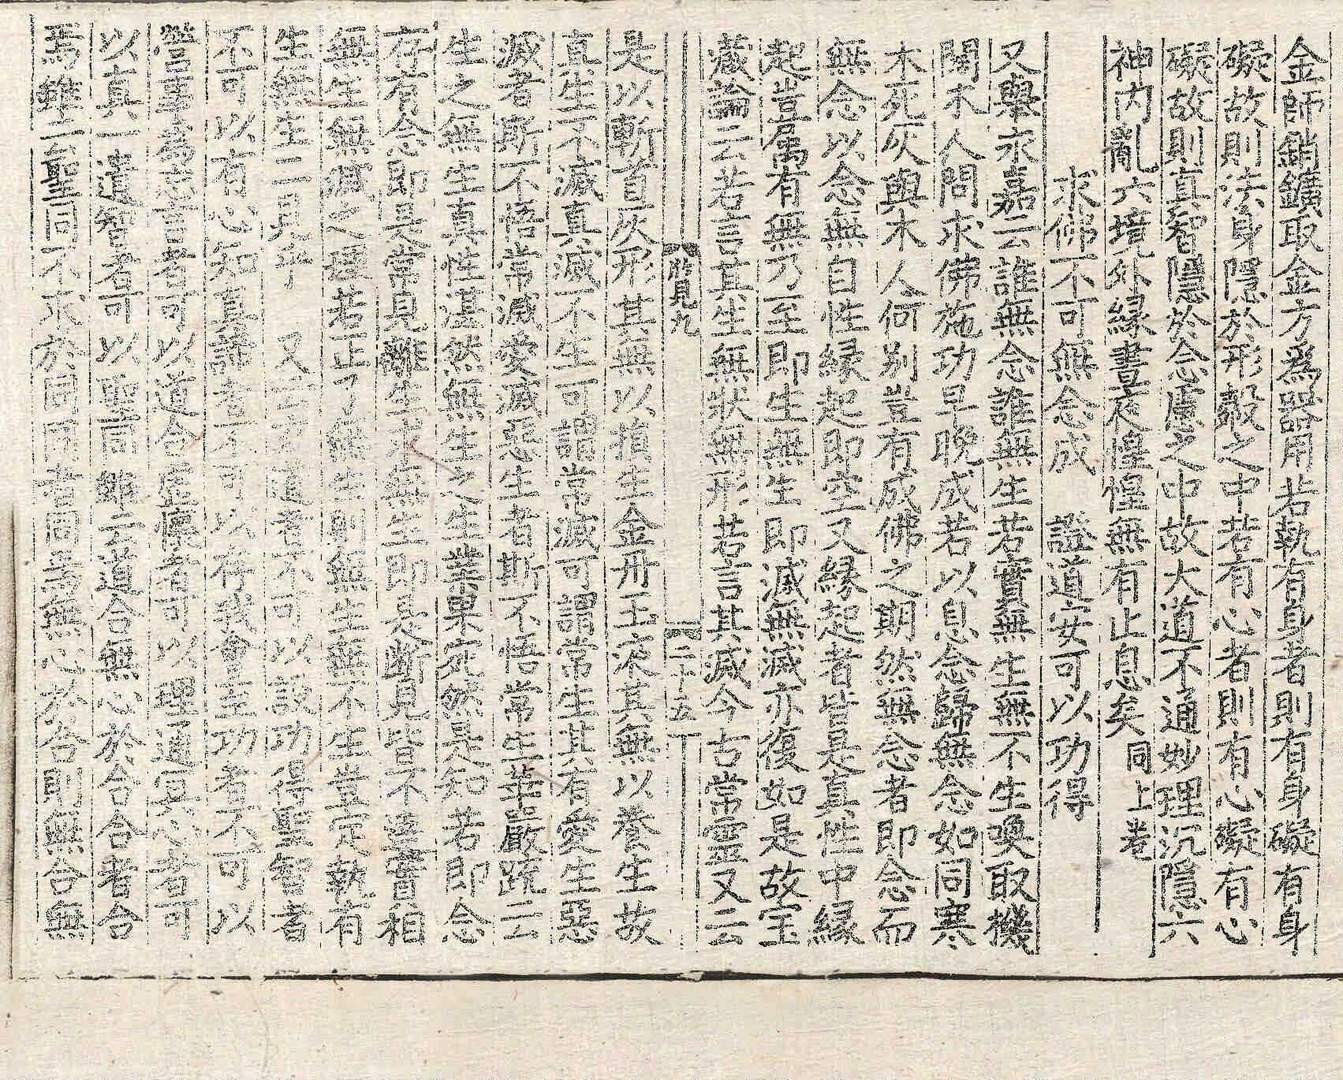 金師銷鑛取金方爲器用若執有身者則有身礙有身
礙故則法身隱於形㲉之中若有心者則有心礙有心
礙故則真智隱於念慮之中故大道不通妙理沉隱六
神内亂六境外緣晝夜惶惶無有止息矣同上卷
求佛不可無念成 證道安可以功得
又舉永嘉云誰無念誰無生若實無生無不生喚取機
關木人問求佛施功早晚成若以息念歸無念如同寒
木死灰與木人何别豈有成佛之期然無念者即念而
無念以念無自性緣起即空又緣起者皆是真性中緣
起豈属有無乃至即生無生即滅無滅亦復如是故宝
藏論云若言其生無狀無形若言其滅今古常靈又云
見九
二十五
是以斬首灰形其無以損生金丹玉液其無以養生故
真生不滅真滅不生可謂常滅可謂常生其有愛生惡
滅者斯不悟常滅愛滅惡生者斯不悟常生華嚴䟽云
生之無生真性湛然無生之生業果宛然是知若即念
存有念即是常見離生求無生即是斷見皆不達實相
無生無滅之理若正了無生則無生無不生豈定執有
生無生二見乎 又云若道者不可以設功得聖智者
不可以有心知真諦者不可以存我會至功者不可以
營事爲忘言者可以道合虛懷者可以理通冥心者可
以真一遣智者可以聖同雖云道合無心於合合者合
焉雖云聖同不求於同同者同焉無心於合則無合無